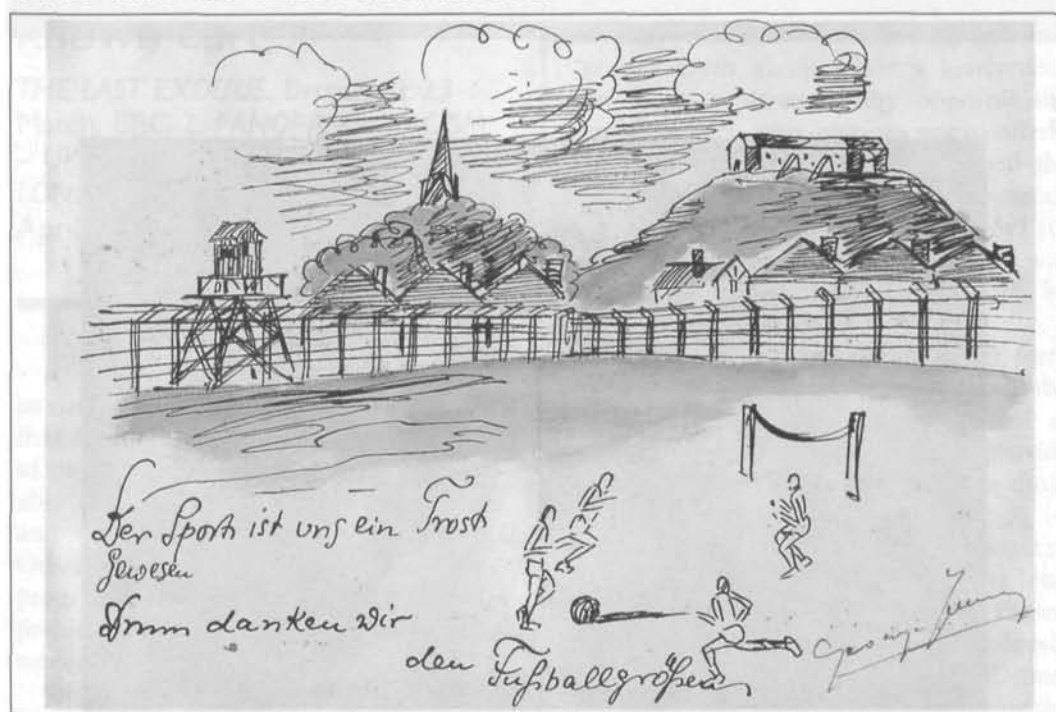 Der Sport ist uns ein Trost
gewesen
Drum danken wir
den Fußballgrößen